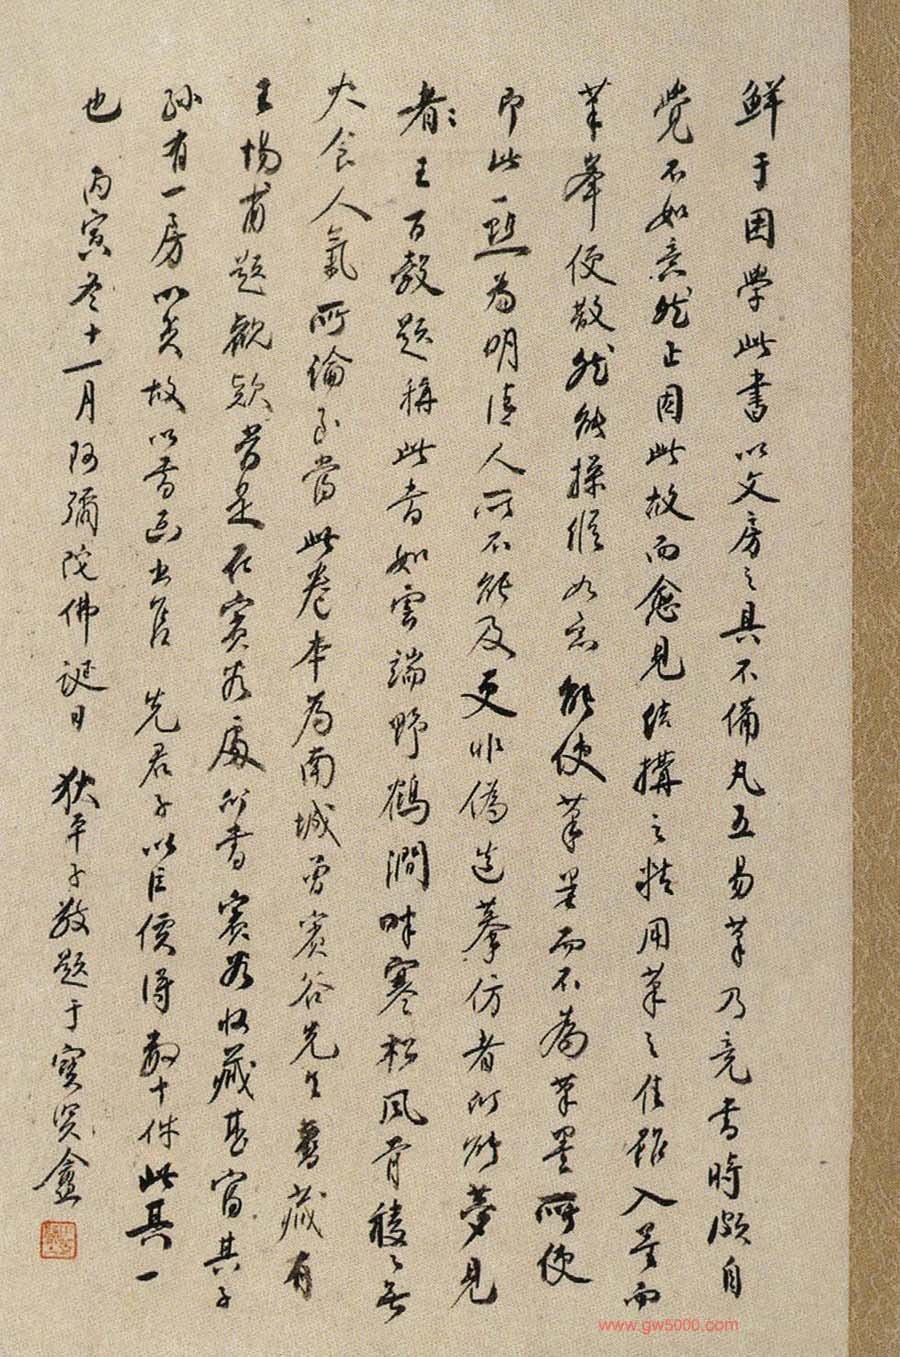 鮮于困學此書以文房之具不備凡五易筆乃竟書時頗自
覺不如意然正因此故而愈見結構之精用筆之佳雖入墨而
筆峯便散然能操縱如意能使筆墨而不為筆墨所使
即此一點為明清人所不能及更非偽造摹仿者所能夢見
者〻王百穀題稱此書如雲端野鶴澗畔寒松風骨稜〻無
火食人氣所論至當此卷本為南城曾賓谷先生舊藏有
王惕甫題觀款當是在賓谷處所書賓谷收藏甚富其子
孫有一房以貧故以書画出售 先君子以巨價得數十件此其一
也 丙寅冬十一月阿彌陀佛誕日 狄平子敬題于寶賢盦
www.gw5000.com